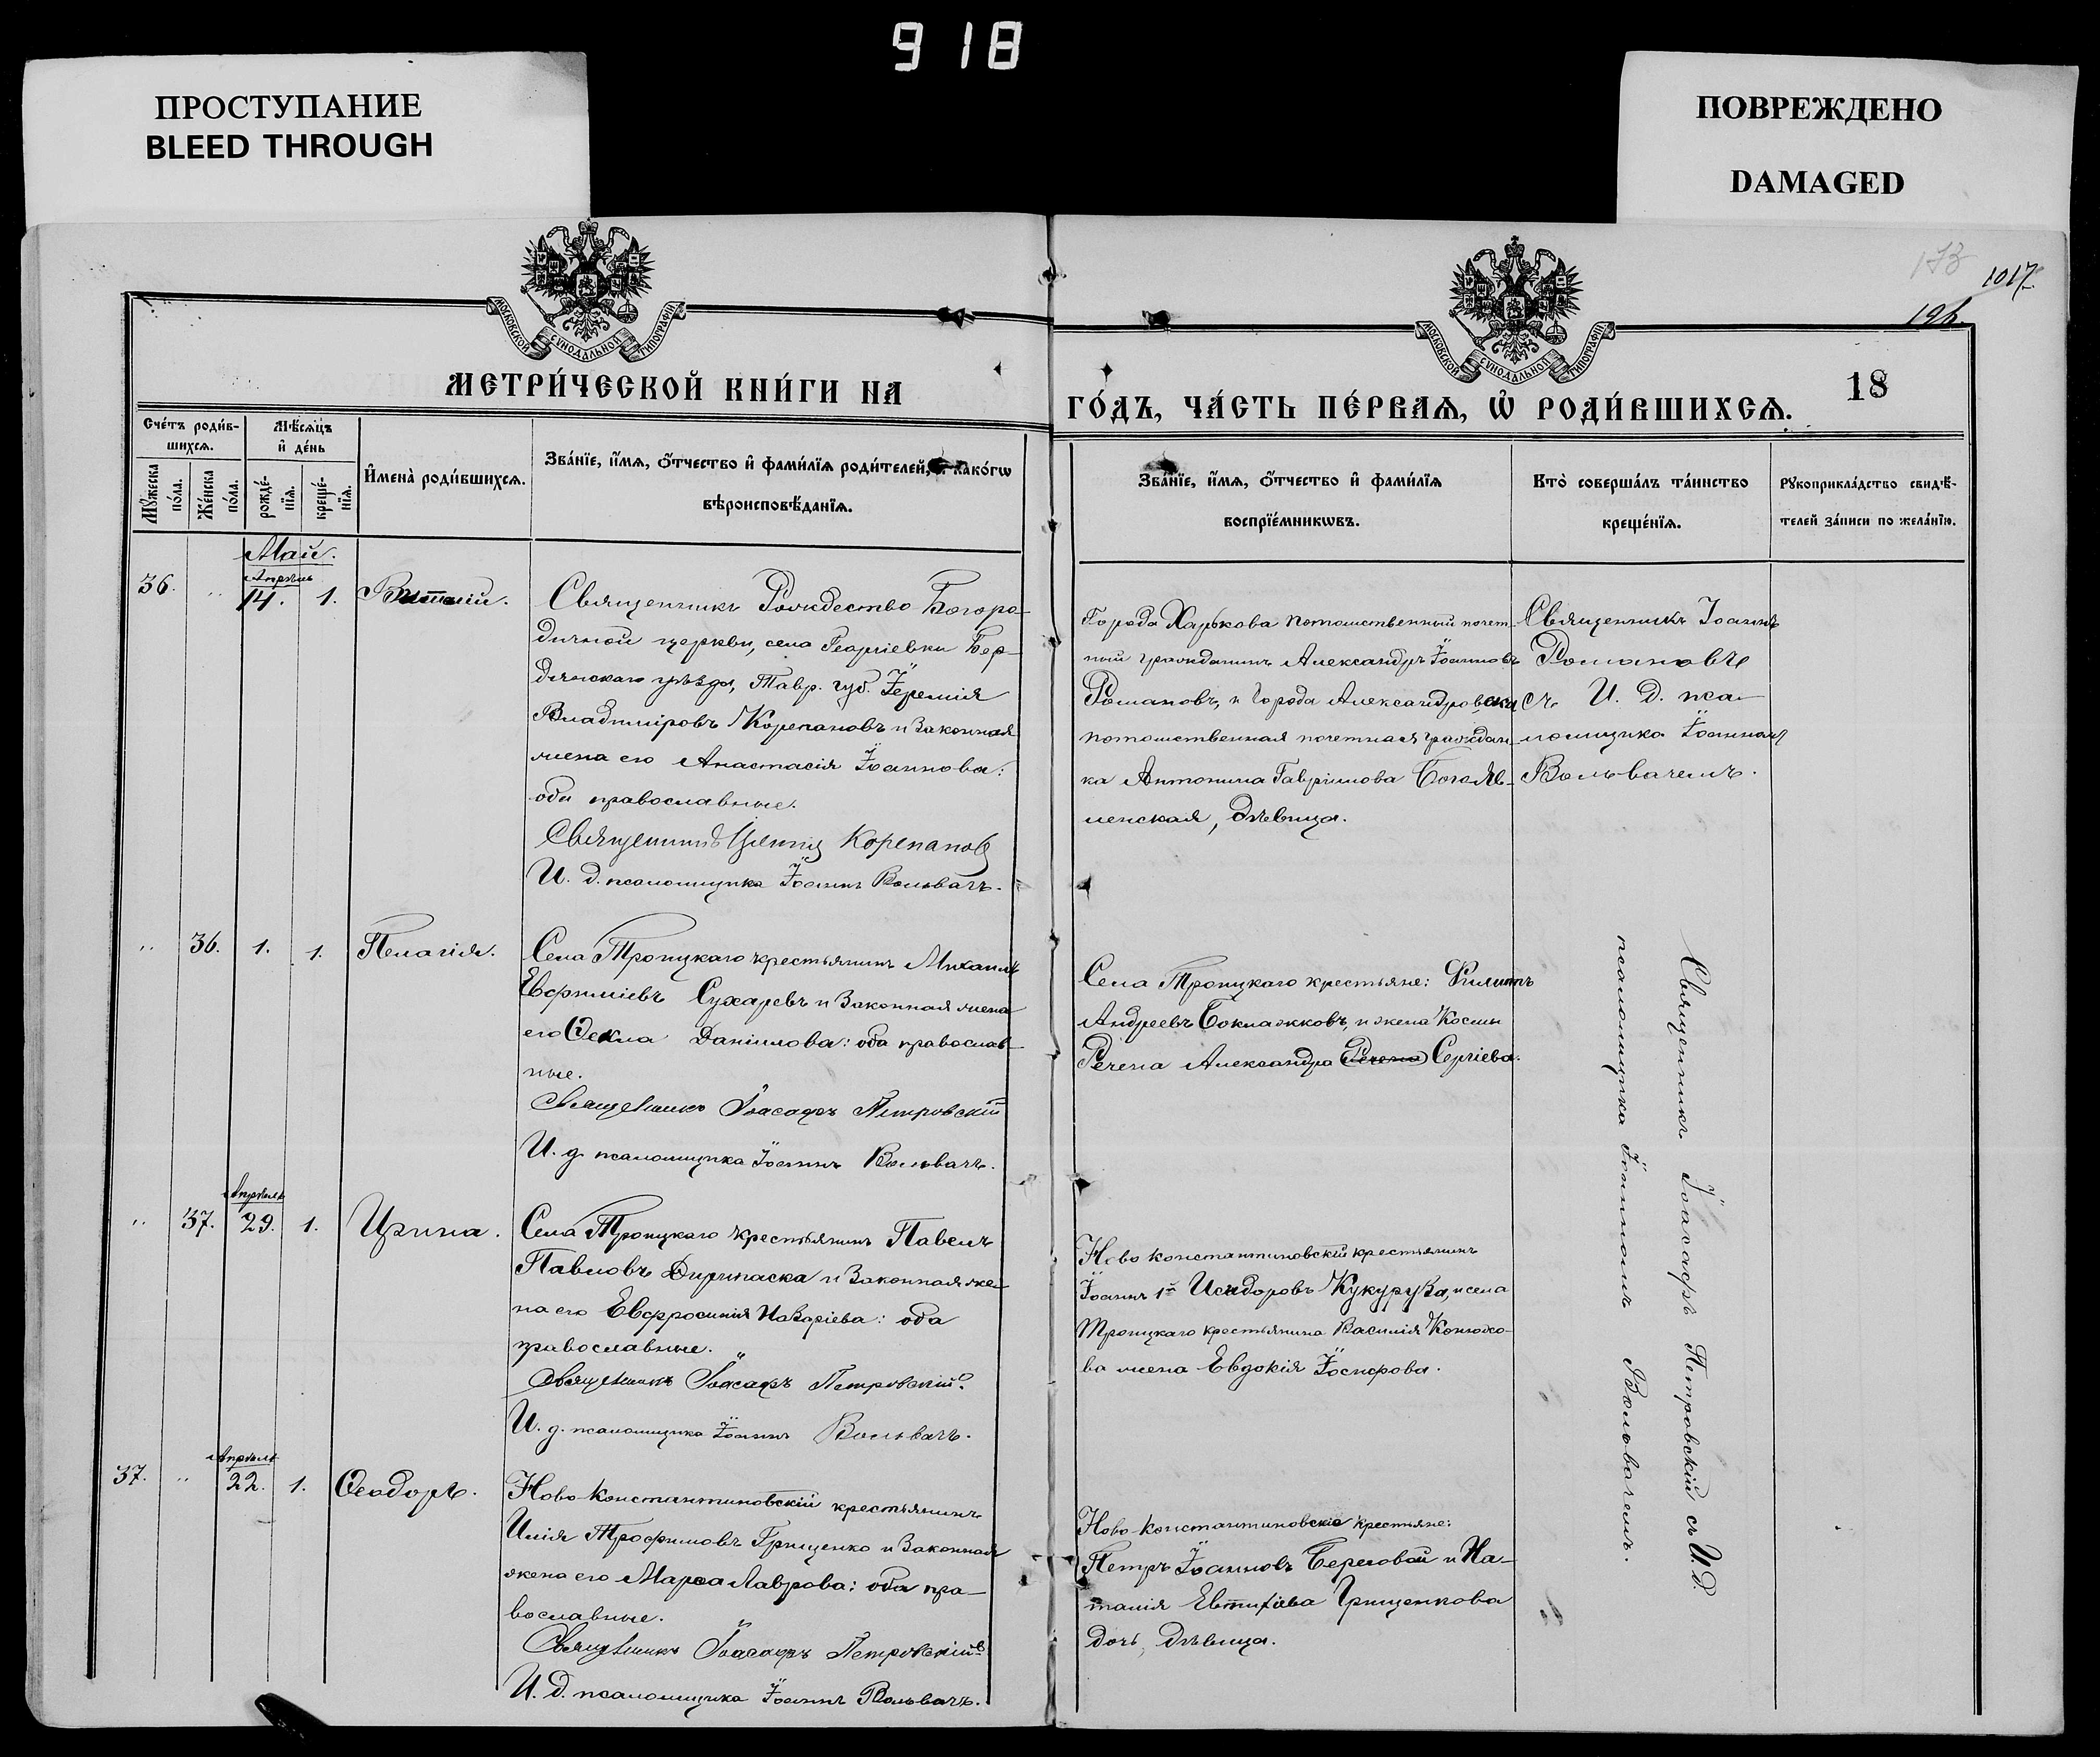 918
ПРОСТУПАНИЕ
BLEED THROUGH
ПОВРЕЖДЕНО
DAMAGED
1017
196
МОСКОВСКОЙ СѴНОДАЛЬНОЙ ТИПОГРАФІИ
МОСКОВСКОЙ СѴНОДАЛЬНОЙ ТИПОГРАФІИ
МЕТРИ́ЧЕСКОЙ КНИ́ГИ НА
ГО́ДЪ, ЧА́СТЬ ПЕ́РВАѦ, Ѡ҆ РОДИ́ВШИХСѦ.
18
Сче́тъ роди́в-
шихсѧ.
Мѣ́сѧцъ
и҆ де́нь
Мꙋ́жеска
по́ла.
Же́нска
по́ла.
рожде́-
нїѧ.
креще́-
нїѧ.
И҆менà роди́вшихсѧ.
Зва́нїе, и҆́мѧ, ѻ҆́тчество и҆ фами́лїѧ роди́телей, и҆ како́гѡ
вѣроисповѣ́данїѧ.
Зва́нїе, и҆́мѧ, ѻ҆́тчество и҆ фами́лїѧ
воспрїе́мникѡвъ.
Кто̀ соверша́лъ та́инство
креще́нїѧ.
Рꙋкоприкла́дство свидѣ́-
телей за́писи по жела́нїю.
Май.
Апрѣль
36. " 14. 1. Виталій.
Священникъ Рождество-Богоро-
дичной церкви, села Георгіевки Бер-
дянскаго уѣзда, Тавр. губ. Іеремія
Владиміровъ Корепановъ и законная
жена его Анастасія Іоаннова:
оба православные.
Священникъ Корепановъ
И. д. псаломщика Іоаннъ Вольвачъ.
Города Харькова потомственный почет-
ный гражданинъ Александръ Іоанновъ
Романовъ, и города Александровска
потомственная почетная граждан-
ка Антонина Гавріилова Богояв-
ленская, дѣвица.
Священникъ Іоаннъ
Романовъ
съ И. Д. пса-
ломщика Іоанномъ
Вольвачемъ.
" 36. 1. 1. Пелагія.
Села Троицкаго крестьянинъ Михаилъ
Евфиміевъ Сухаревъ и законная жена
его Ѳекла Даніилова: оба православ-
ные.
Священникъ Іоасафъ Петровскій
И. д. псаломщика Іоаннъ Вольвачъ.
Села Троицкаго крестьяне: Филиппъ
Андреевъ Баклажковъ, и жена Космы
Речепа Александра Сергіева.
Священникъ Іоасафъ Петровскій съ И. Д.
псаломщика Іоанномъ Вольвачемъ.
Апрѣль
" 37. 29. 1. Ирина.
Села Троицкаго крестьянинъ Павелъ
Павловъ Дирипаска и законная же-
на его Евфросинія Назаріева: оба
православные.
Священникъ Іоасафъ Петровскій.
И. д. псаломщика Іоаннъ Вольвачъ.
Ново-Константиновскій крестьянинъ
Іоаннъ 1й Исидоровъ Кукуруза, и села
Троицкаго крестьянина Василія
жена Евдокія Іосифова.
Апрѣль
37. " 22. 1. Ѳеодоръ.
Ново-Константиновскій крестьянинъ
Илія Трофимовъ Грищенко и законная
жена его Марѳа Лаврова: оба пра-
вославные.
Священникъ Іоасафъ Петровскій
И. Д. псаломщика Іоаннъ Вольвачъ.
Ново-Константиновскіе крестьяне:
Петръ Іоанновъ Береговой и На-
талія Евтихіева Грищенкова
дочь, дѣвица.